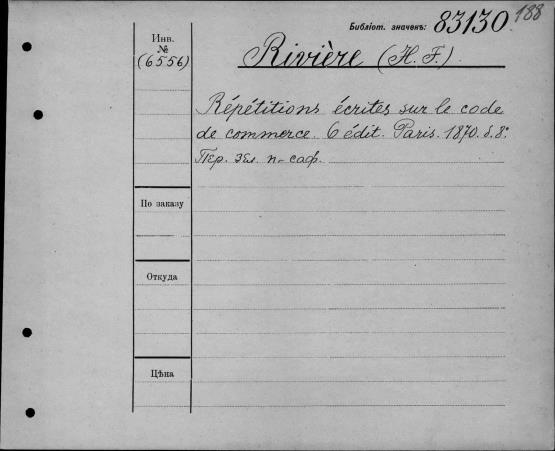 188
Библіот. значекъ: 83130
Инв.
№
(6556)
Rivière (H. F.)
Répétitions écrites sur le code
de commerce. 6 édit. Paris. 1870. d. 8°.
Пер. эбл. п-саф.
По заказу
Откуда
Цѣна